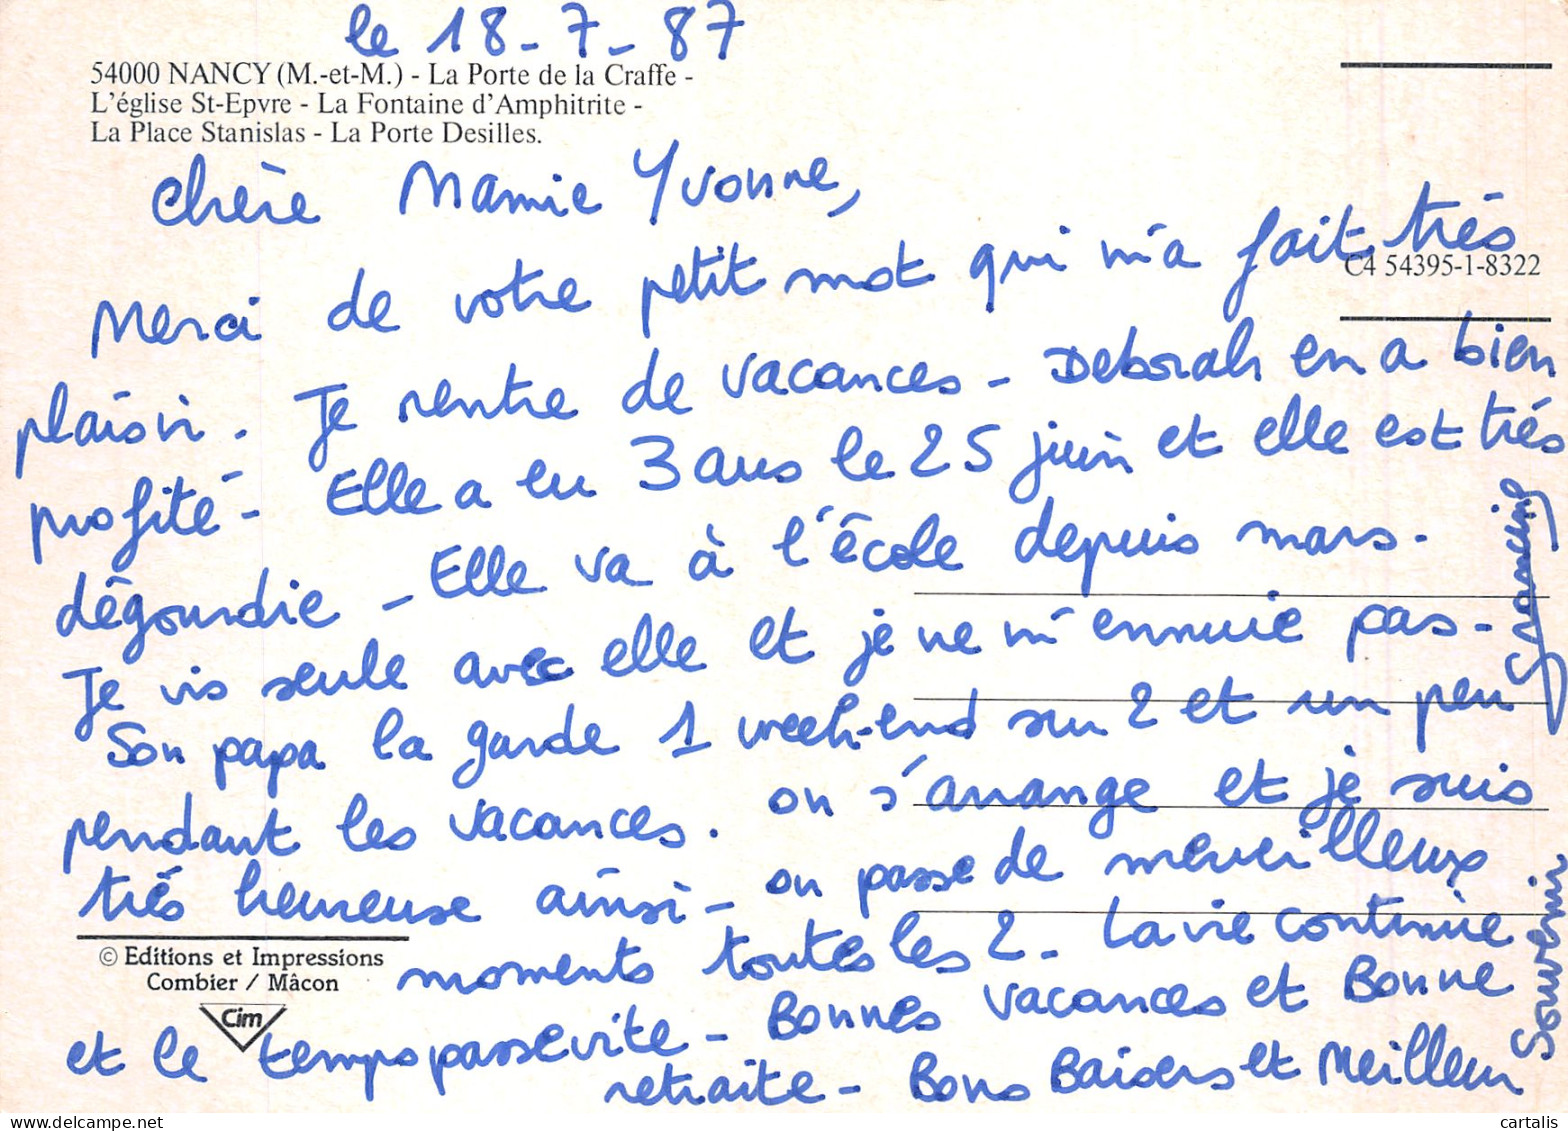 le 18-7-87
54000 NANCY (M.-et-M.) - La Porte de la Craffe -
L'église St-Epvre - La Fontaine d'Amphitrite -
La Place Stanislas - La Porte Desilles.
Chère Mamie Yvonne,
Merci de votre petit mot qui m'a fait très
C4 54395-1-8322
plaisir. Je rentre de vacances - Deborah en a bien
profité - Elle a eu 3 ans le 25 juin et elle est très
dégourdie - Elle va à l'école depuis mars.
Je vis seule avec elle et je ne m'ennuie pas -
Son papa la garde 1 week-end sur 2 et un peu
pendant les vacances. on s'arrange et je suis
très heureuse ainsi - on passe de merveilleux
moments toutes les 2 - La vie continue
et le temps passe vite - Bonnes vacances et Bonne
retraite - Bons Baisers et Meilleur
Souvenir
© Editions et Impressions
Combier / Mâcon
Cim
delcampe.net
cartalis